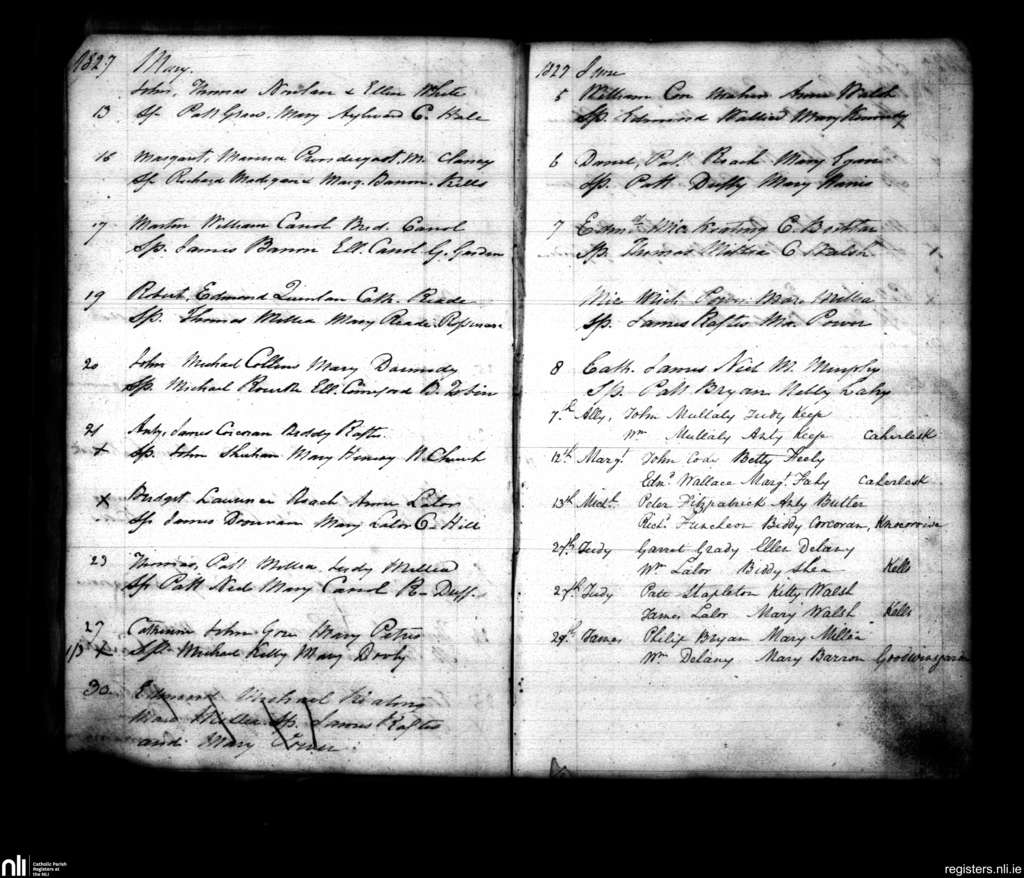 1827 May.
John, Thomas Nowlan & Ellen White
13 Sp. Patt Grace. Mary Aylward C. Hale
16 Margaret, Maurice Prendergast, M. Clancy
Sp Richard Madigan & Marg. Barron. Kells
17 Martin William Carrol Brid. Carrol
Sp. James Barron Ell. Carrol G. Garden
19 Robert, Edmond Quinlan Cath. Reade
Sp. Thomas Millea Mary Reade.
20 John Michael Collins Mary Darmody
Sp. Michael Rourke Ell. Comford B. Tobin
21 Anty, James Corcoran Biddy Rafter
x Sp. John Shuhan Mary Hearny N. Church
x Bridget Lawrence Roach Anne Lalor
Sp James Donovan Mary Lalor C. Hill
23 Thomas, Patt Millea, Judy Millea
Sp Patt Neil Mary Carrol R. Duff
27 Catherine John Gore Mary Petris
x Sp. Michael Kelly Mary Dooly
30 Edmond Michael Keating
Millea Sp. James Rafter
and Mary Power
1827 June
5 William Con Maher Anne Walsh
Sp. Edmond Wallice Mary Kennedy
6 Daniel, Pat. Roach Mary Egan
Sp. Patt Duffy Mary Harris
7 Edmd. Mic Keating C.
Sp. Thomas Millea C Walsh
Mic Mich. Power Mar. Millea
Sp. James Rafter Mar. Power
8 Cath. James Neil M. Murphy
Sp. Patt Bryan Nelly Lahy
7th Ally, John Mullaly Judy Keep
Wm. Mullaly Anty Keep Caherlesk
12th Margt. John Cody Betty Feely
Edmd. Wallace Margt. Fahy Caherlesk
13th Michl. Peter Fitzpatrick Anty Butler
Richd. Funcheon Biddy Corcoran, Knocorrive
27th Judy Garret Grady Ellen Delany
Wm Lalor Biddy Shea Kells
27th Judy Patt Stapleton Kitty Walsh
James Lalor Mary Walsh. Kells
29th James Philip Bryan Mary Millea
Wm. Delany Mary Barron Goodwinsgarden
nli Catholic Parish
Registers at
the NLI
registers.nli.ie